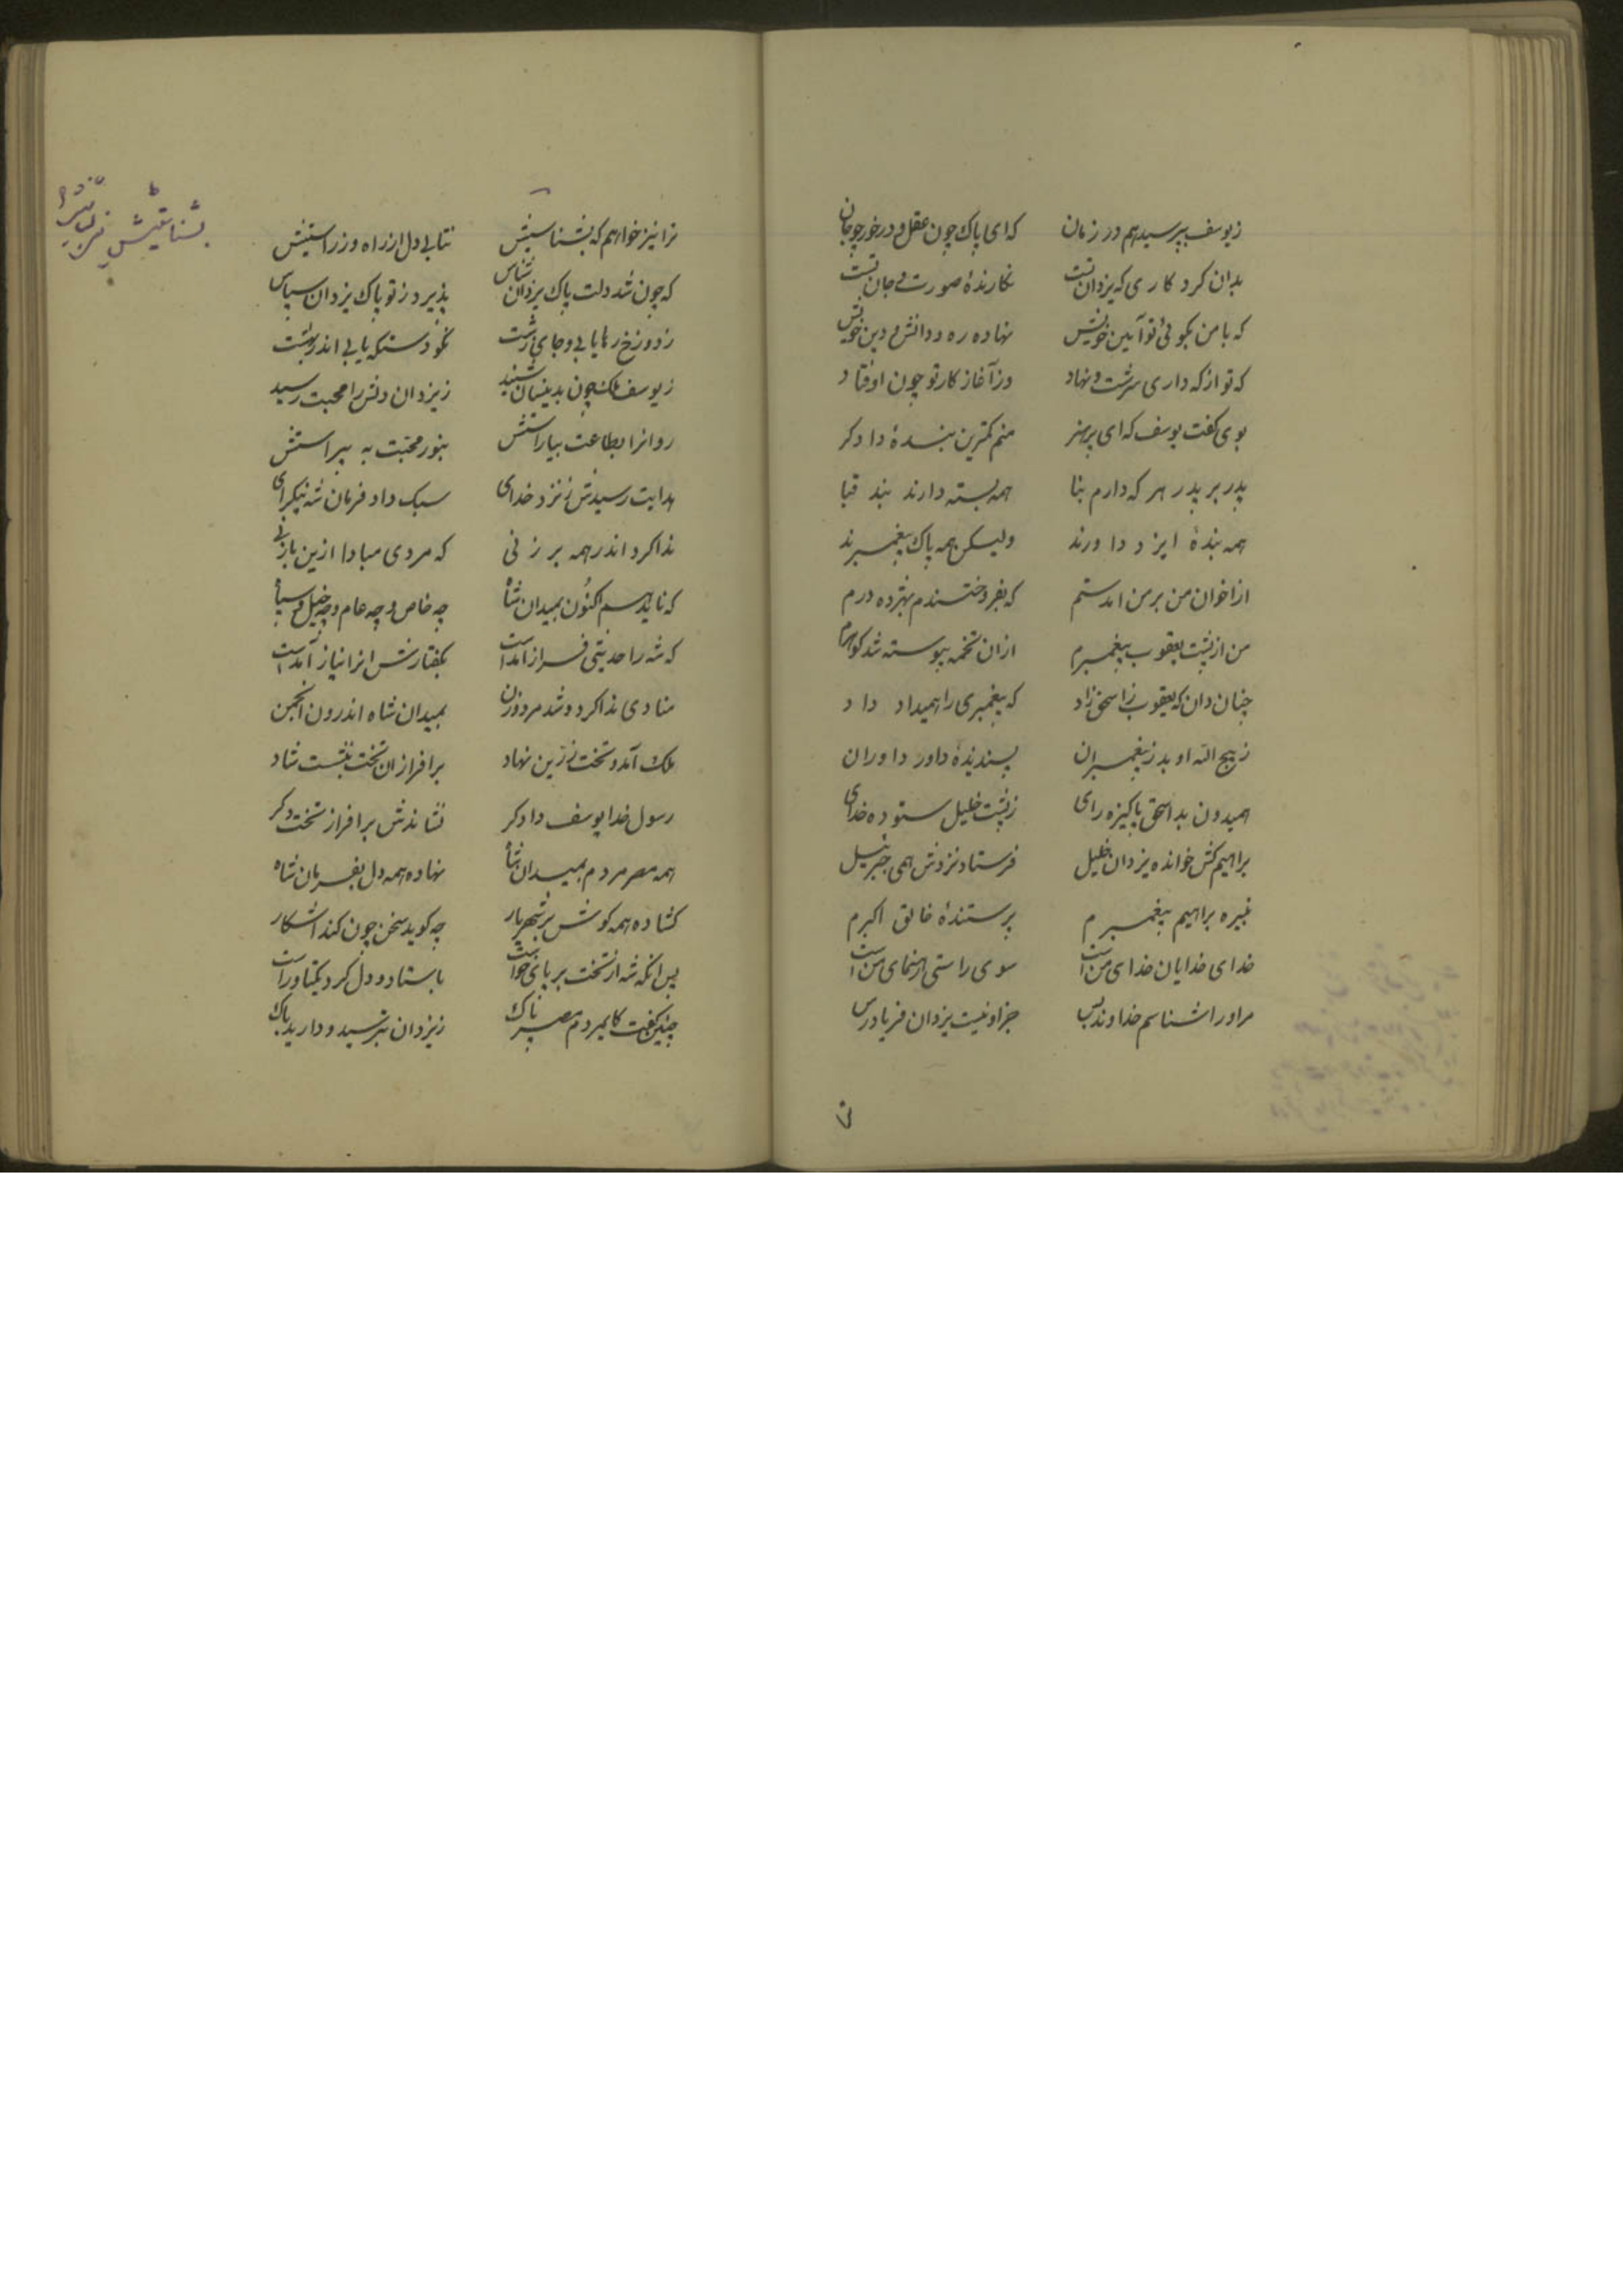 زیوسف بپرسید هم در زمان که ای پاک چون عقل و در خور چو جان
بدان کرد کاری که یزدان تست نگارندهٔ صورت و جان تست
که با من بگوئی تو آیین خویش نهاده ره و دانش و دین خویش
که تو از که داری سرشت و نهاد وز آغاز کار تو چون اوفتاد
بوی گفت یوسف که ای پرهنر منم کمترین بندهٔ دادگر
پدر بر پدر هر که دارم بنا همه بسته دارند بند قبا
همه بندهٔ ایزد داورند ولیکن همه پاک پیغمبرند
از اخوان من بر من آمد ستم که بفروختندم بهژده درم
من از پشت یعقوب پیغمبرم از آن تخمه پیوسته شد گوهرم
چنان دان که یعقوب ز اسحق زاد که پیغمبری را همی داد داد
ذبیح الله او بد ز پیغمبران پسندیدهٔ داور داوران
همیدون بد اسحق پاکیزه رای ز پشت خلیل ستوده خدای
براهیم کش خوانده یزدان خلیل فرستاد نزدش همی جبرئیل
نبیره براهیم پیغمبرم پرستندهٔ خالق اکبرم
خدای خدایان خدای من است سوی راستی رهنمای من است
مر او را شناسم خداوند بس جز او نیست یزدان فریادرس
ترا نیز خواهم که بشناسیش نتابی دل از راه وز راستیش
که چون شد دلت پاک یزدان شناس پذیرد ز تو پاک یزدان سپاس
ز دوزخ رها یابی و جای زشت نکو دستگه یابی اندر بهشت
ز یوسف ملک چون بدینسان شنید ز یزدان دلش را محبت رسید
روانرا بطاعت بیاراستش بنور محبت به پیراستش
هدایت رسیدش ز نزد خدای سبک داد فرمان شه نیکرای
ندا کرد اندر همه برزنی که مردی مبادا ازین باز نی
که ناید هم اکنون بمیدان شاه چه خاص و چه عام و چه خیل و سپاه
که شه را حدیثی فراز آمد است بگفتارش انرا نیاز آمد است
منادی ندا کرد و شد مرد و زن بمیدان شاه اندرون انجمن
ملک آمد و تخت زرین نهاد بر افراز ان تخت بنشست شاد
رسول خدا یوسف دادگر نشاندش بر افراز تخت دگر
همه مصر مردم بمیدان شاه نهاده همه دل بفرمان شاه
گشاده همه گوش بر شهریار چه گوید سخن چون کند آشکار
پس آنگه شه از تخت بر پای خواست باستاد و دل کرد یکتا و راست
چنین گفت کای مردم مصر پاک ز یزدان بترسید و دارید باک